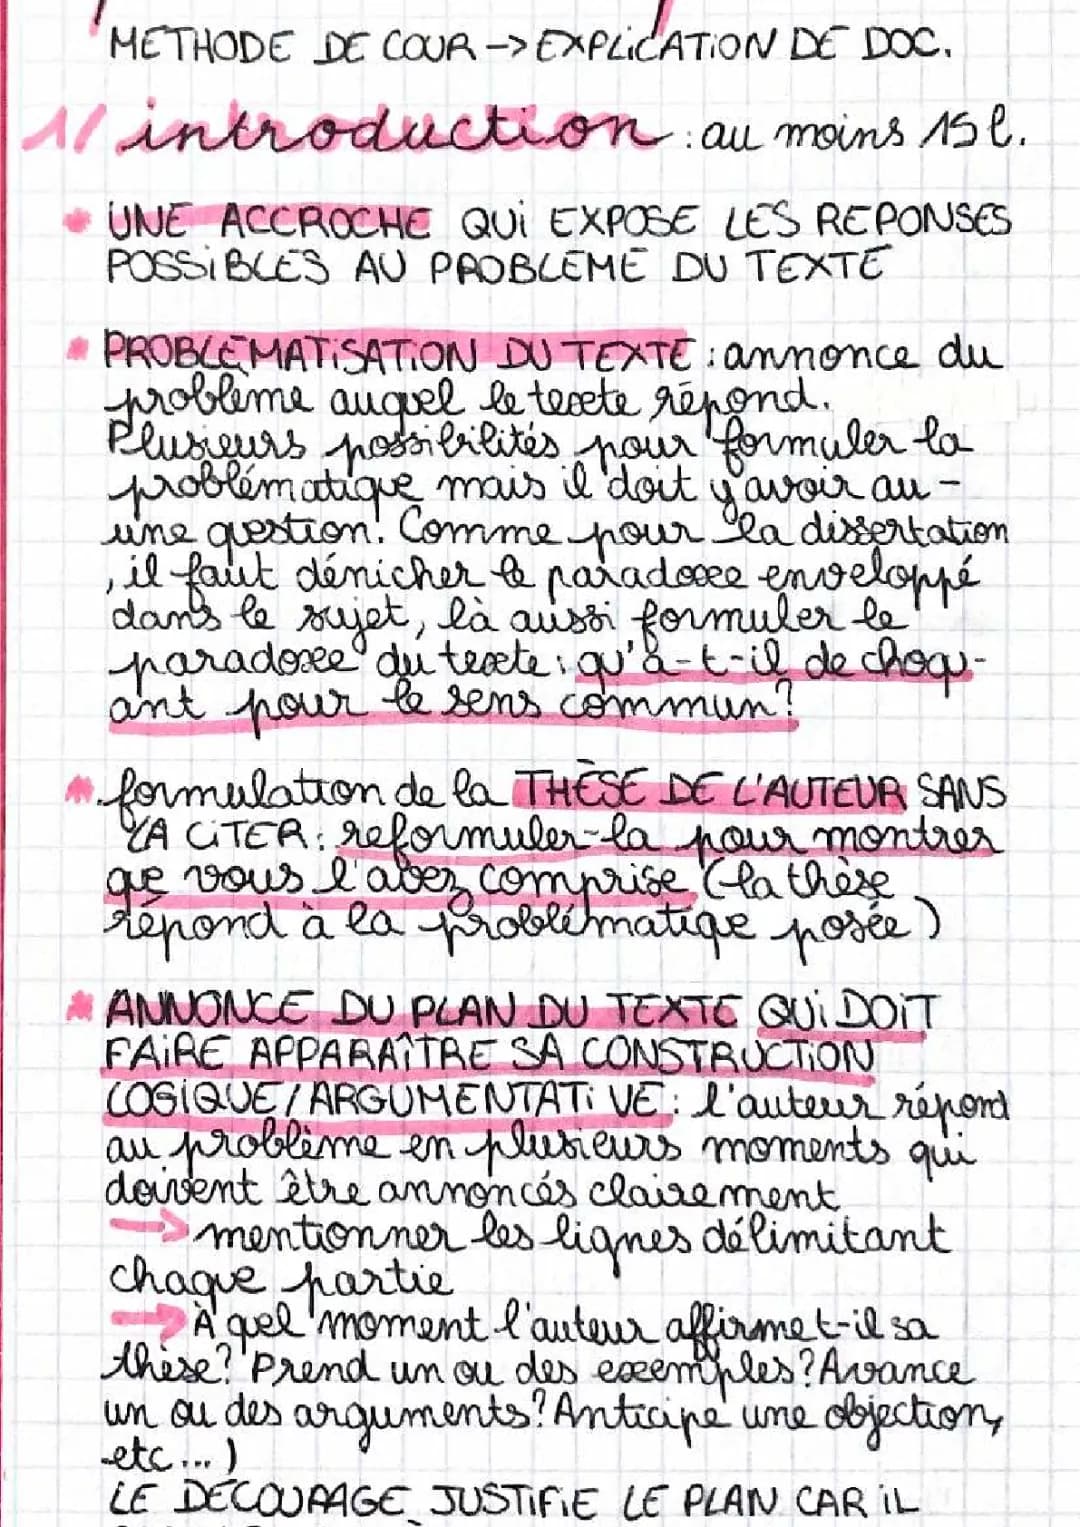 METHODE DE COUR -> EXPLICATION DE DOC.
1/ introduction : au moins 15 l.
* UNE ACCROCHE QUI EXPOSE LES REPONSES
POSSIBLES AU PROBLEME DU TEXTE
* PROBLEMATISATION DU TEXTE : annonce du
problème auquel le texte répond.
Plusieurs possibilités pour formuler la
problématique mais il doit y avoir au -
une question! Comme pour la dissertation
, il faut dénicher le paradoxe enveloppé
dans le sujet, là aussi formuler le
paradoxe du texte : qu'a-t-il de choqu-
ant pour le sens commun?
* formulation de la THÈSE DE L'AUTEUR SANS
LA CITER : reformuler-la pour montrer
que vous l'avez comprise (la thèse
répond à la problématique posée)
* ANNONCE DU PLAN DU TEXTE QUI DOIT
FAIRE APPARAÎTRE SA CONSTRUCTION
LOGIQUE / ARGUMENTATIVE : l'auteur répond
au problème en plusieurs moments qui
doivent être annoncés clairement
-> mentionner les lignes délimitant
chaque partie
-> À quel moment l'auteur affirme t-il sa
thèse? Prend un ou des exemples? Avance
un ou des arguments? Anticipe une objection,
etc...)
LE DÉCOUPAGE JUSTIFIE LE PLAN CAR IL